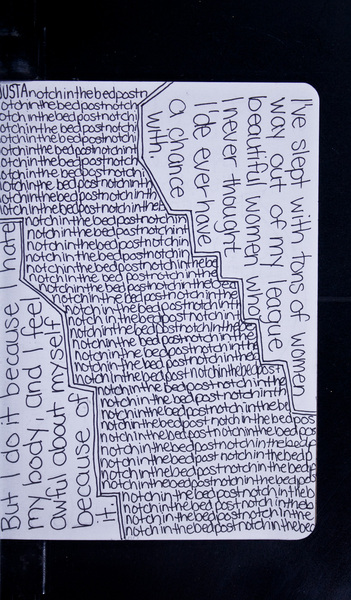 I've slept with tons of women
way out of my league
beautiful women who
I never thought
I'de ever have
a chance
with.
JUSTAnotchinthebedpostn
otchinthebedpostnotch
notchinthebedpostnotch
notchinthebedpostnotch
notchinthebedpostnotch
notchinthebedpostnotchi
notchinthebedpostnotchi
notchinthebedpostnotchin
notchinthebedpostnotchin
notchinthebedpostnotchinthe
notchinthebedpostnotchinthe
notchinthebedpostnotchin
notchinthebedpostnotchin
notchinthebedpostnotchin
notchinthebedpostnotchinthe
notchinthebedpostnotchinthe
notchinthebedpostnotchinthebe
notchinthebedpostnotchinthe
notchinthebedpostnotchinthe
notchinthebedpostnotchinthe
notchinthebedpostnotchinthe
notchinthebedpostnotchinthebed
notchinthebedpostnotchinthebedpost
notchinthebedpostnotchinthe
notchinthebedpostnotchinthebe
notchinthebedpostnotchinthebedpos
notchinthebedpostnotchinthebedp
notchinthebedpostnotchinthebedp
notchinthebedpostnotchinthebedp
notchinthebedpostnotchinthebedpos
notchinthebedpostnotchintheb
notchinthebedpostnotchinthebe
notchinthebedpostnotchinthe
notchinthebedpostnotchinthebed
But I do it because I hate
my body, and I feel
awful about myself
because of
it.